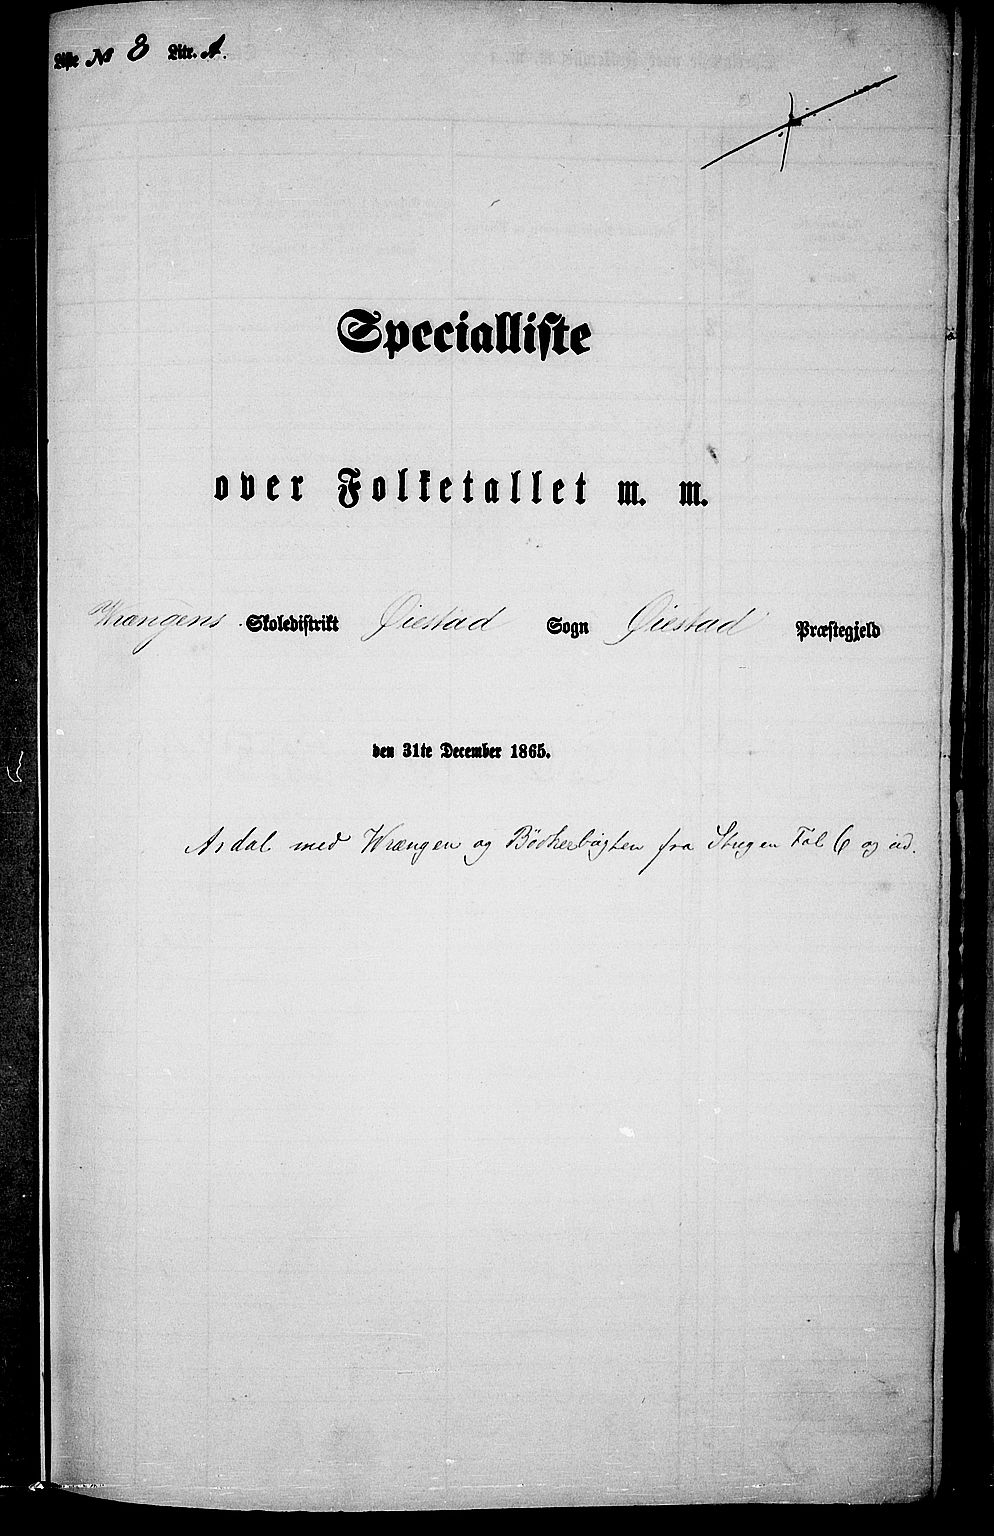 Liste № 8 Litr. A.
Specialliste
over Folketallet m. m.
Wrængens Skoledistrikt Øiestad Sogn Øiestad Præstegjeld
den 31te December 1865.
Asdal med Wrængen og Bödkerbugten fra Stuen Fol 6 og ud.